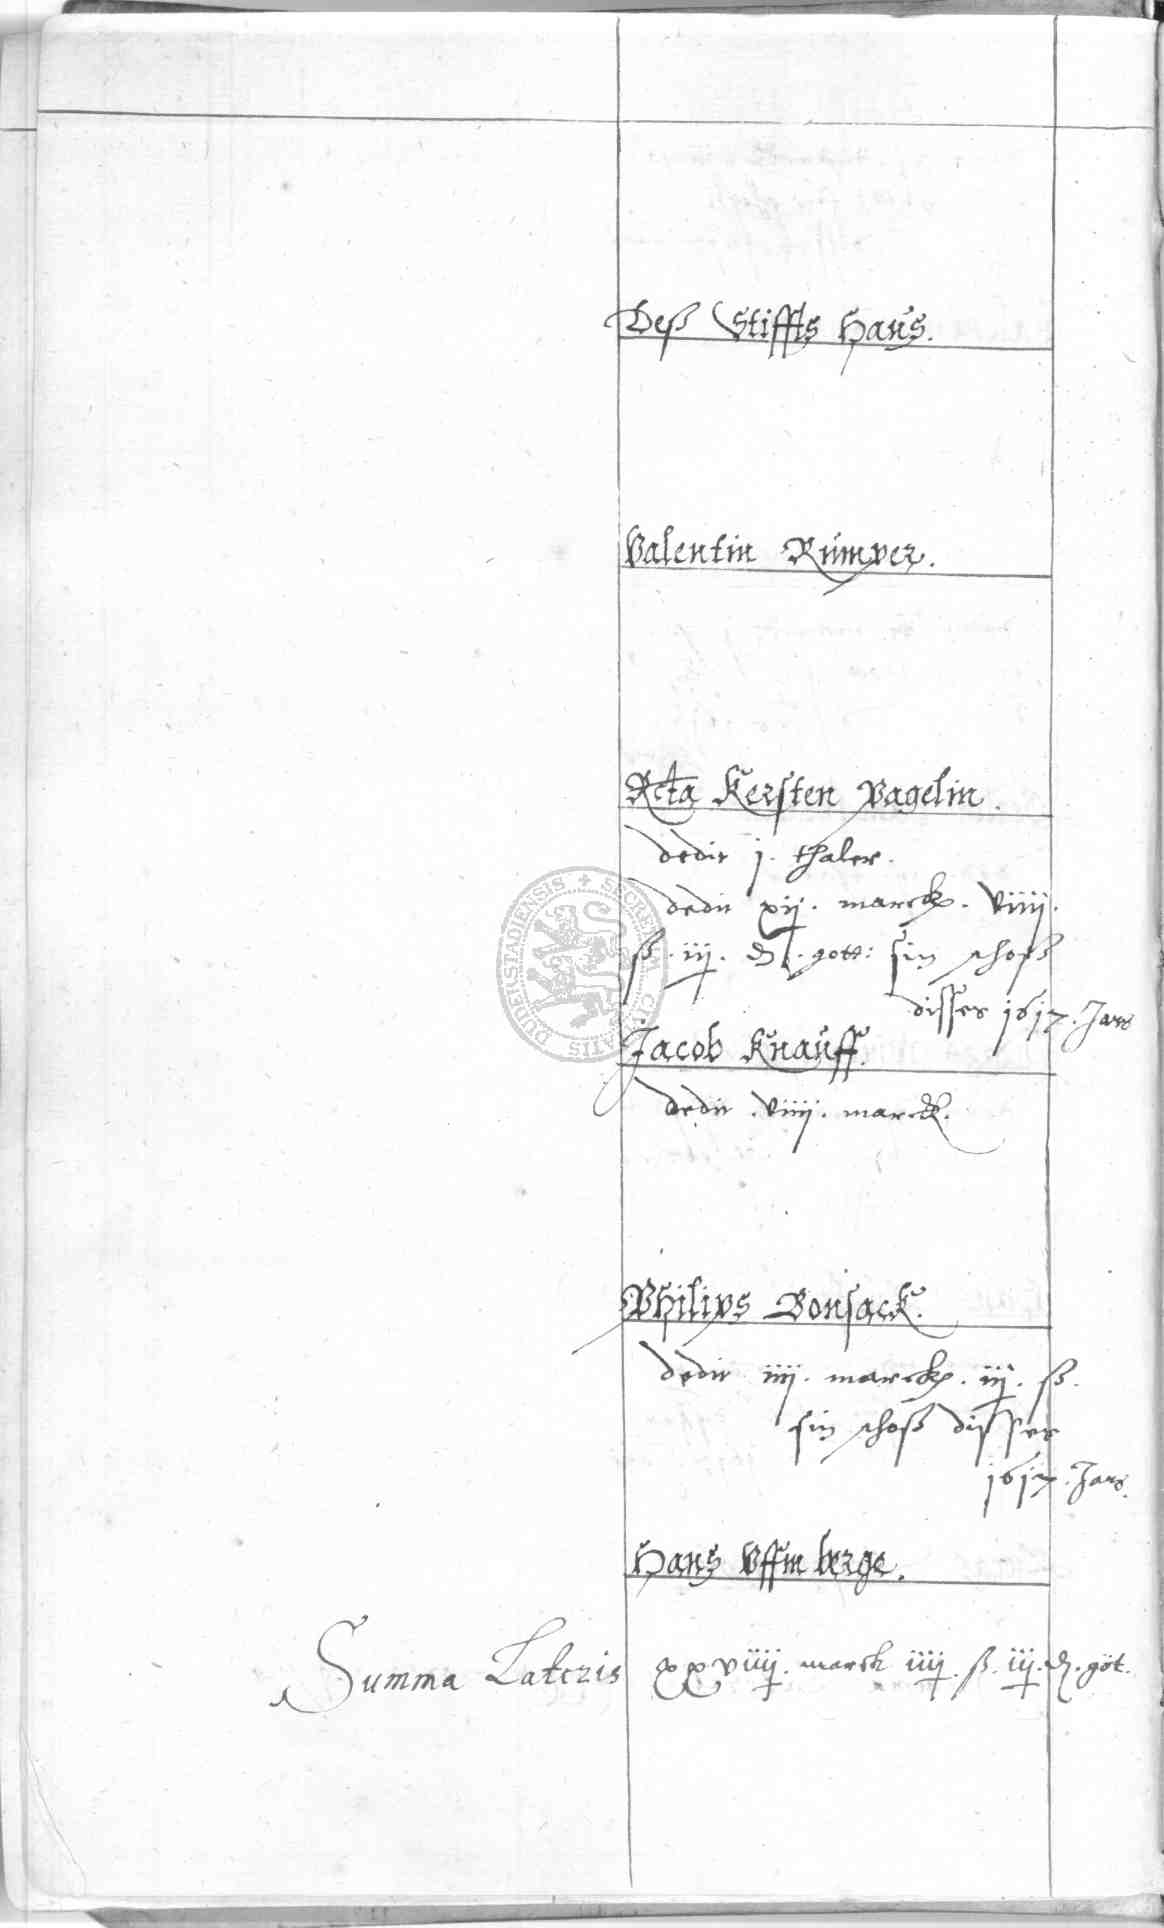 Deß Stiffts Haus.
Valentin Rümper.
Rcta Kersten Vagelin.
dedit j. thaler.
dedit xij. marck. viiij.
ß. iij. d. gott: sin schoß
disses 1617. Jars
Jacob Knauff.
dedit .viiij. marck.
Philips Bonsack.
dedit iiij. marck. iij. ß.
sin schoß disses
1617. Jars.
Hans Uffm berge.
Summa Lateris xxviiij. marck iiij. ß. iij. d. göt.
SECRETUM CIVITATIS DUDERSTADIENSIS